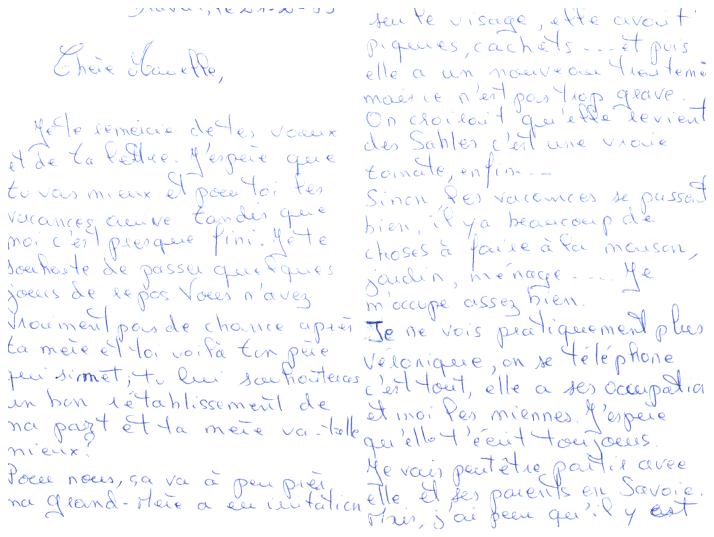 Chère Manelle,
Je te remercie de tes voeux
et de ta lettre. J'espère que
tu vas mieux et pour toi les
vacances arrive tandis que
moi c'est presque fini. Je te
souhaite de passer quelques
jours de repos. Vous n'avez
vraiment pas de chance après
ta mère et toi voilà ton père
qui s'i met, tu lui souhaiteras
un bon rétablissement de
ma part et ta mère va-t-elle
mieux?
Pour nous, ça va à peu près,
ma grand-mère a eu irritation
sur le visage, elle avait
piqures, cachets ... et puis
elle a un nouveau traiteme
mais ce n'est pas trop grave.
On croirait qu'elle revient
des Sables c'est une vraie
tomate, enfin...
Sinon les vacances se passent
bien, il y a beaucoup de
choses à faire à la maison,
jardin, ménage.... Je
m'occupe assez bien.
Je ne vois pratiquement plus
Véronique, on se téléphone
c'est tout, elle a ses occupatio
et moi les miennes. J'espère
qu'elle t'écrit toujours.
Je vais peut être partir avec
elle et ses parents en Savoie.
Mais, j'ai peur qu'il y est